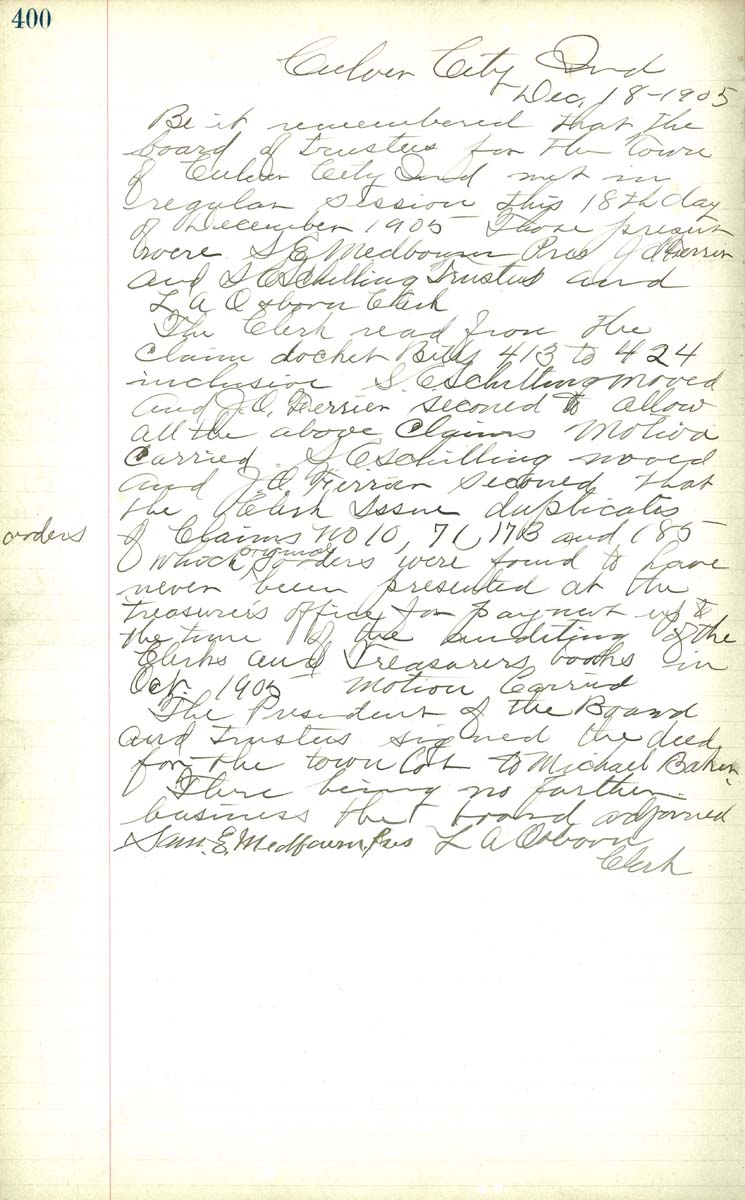 400
Culver City Ind
Dec, 18-1905
Be it remembered that the
board of trustees for the Town
of Culver City Ind met in
regular session this 18th day
of December 1905 Those present
were S E Medbourn Pres J O Ferrier
and S E Schilling Trustees and
L A Osborn Clerk
The Clerk read from the
Claim docket Bills 413 to 424
inclusive S. E Schilling moved
and J. O. Ferrier seconed to allow
all the above Claims Motion
Carried S E Schilling moved
and J O Ferrier Seconed that
the Clerk Issue duplicates
orders of Claims No 10, 71, 173 and 185
of which original orders were found to have
never been presented at the
treasurer's office for payment up to
the time of the auditing of the
Clerks and Treasurers books in
Oct. 1905 Motion Carried
The President of the Board
and trustees signed the deed
for the town lot to Michael Baker.
There being no further
business the board adjorned
Sam. E. Medbourn, Pres L A Osborn
Clerk